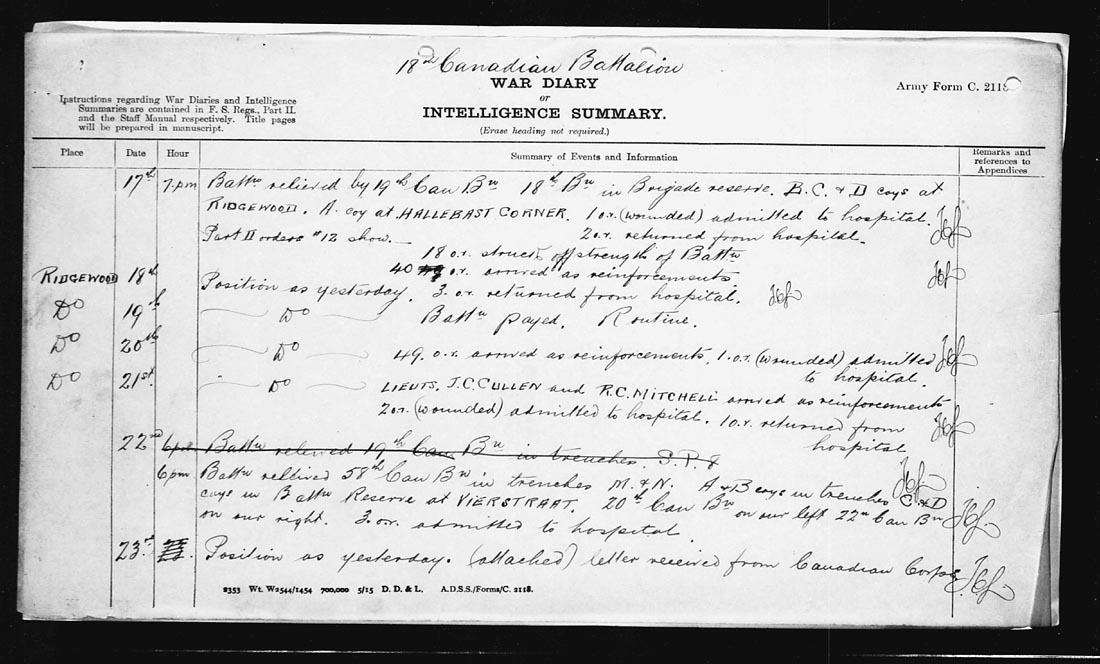 18th Canadian Battalion
WAR DIARY
or
INTELLIGENCE SUMMARY.
(Erase heading not required.)
Army Form C. 2118
Instructions regarding War Diaries and Intelligence
Summaries are contained in F. S. Regs., Part II.
and the Staff Manual respectively. Title pages
will be prepared in manuscript.
Place Date Hour Summary of Events and Information Remarks and
references to
Appendices
17th 7.pm Battn relieved by 19th Can Bn 18th Bn in Brigade reserve. B.C. & D coys at
RIDGEWOOD. A. coy at HALLEBAST CORNER. 1 o.r. (wounded) admitted to hospital.
Part II orders #12 show. 2 o.r. returned from hospital.
18 o.r. struck off strength of Battn
40 o.r. arrived as reinforcements
RIDGEWOOD 18th Position as yesterday. 3. o.r. returned from hospital.
Do 19th Do Battn payed. Routine.
Do 20th Do 49. o.r. arrived as reinforcements. 1.o.r. (wounded) admitted
to hospital.
Do 21st. Do LIEUTS. J.C. CULLEN and R.C. MITCHELL arrived as reinforcements
2 o.r. (wounded) admitted to hospital. 1 o.r. returned from
hospital
22nd 6pm Battn relieved 19th Can Bn in trenches. S.P. 8
6pm Battn relieved 58th Can Bn in trenches M. & N. A & B coys in trenches C. & D
coys in Battn Reserve at VIERSTRAAT. 20th Can Bn on our left 22n Can Bn
on our right. 3. o.r. admitted to hospital.
23rd Position as yesterday. (attached) letter received from Canadian Corps
2353 Wt. W2544/1454 700,000 5/15 D. D. & L. A.D.S.S./Forms/C. 2118.